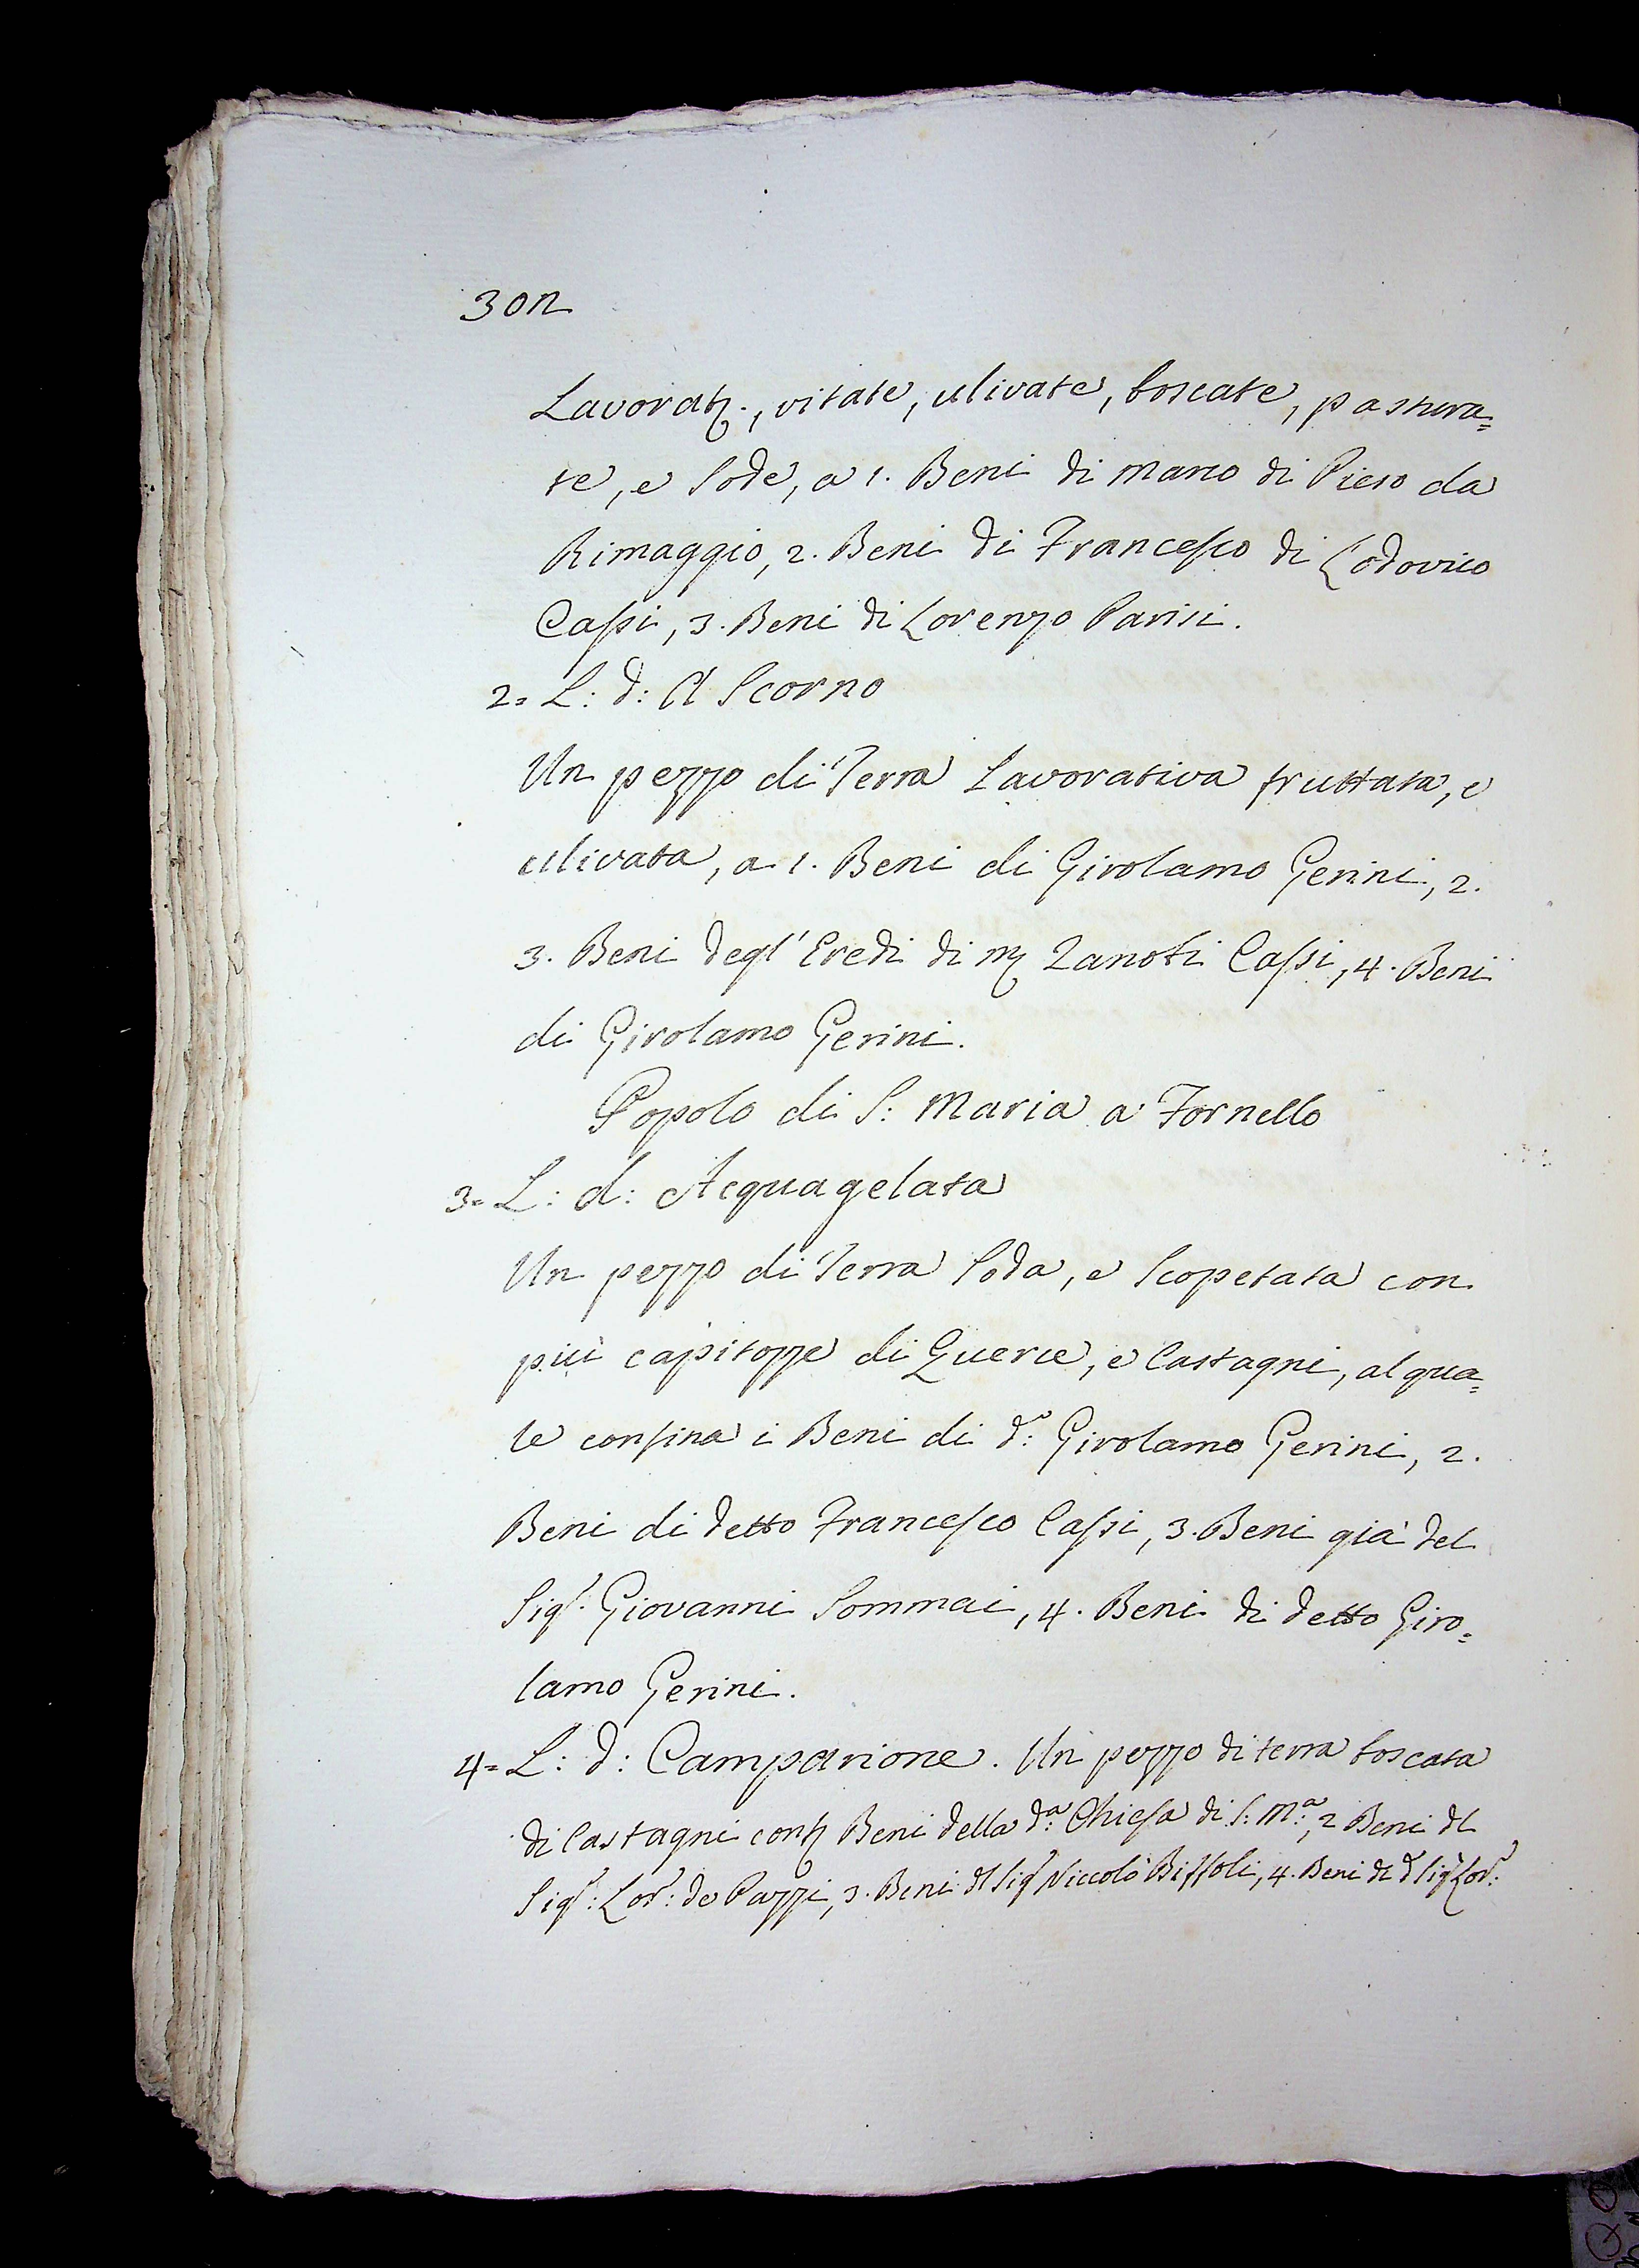 302
Lavorat., vitate, ulivate, boscate, pastura=
te, e Sode, a 1. Beni di Marco di Piero da
Rimaggio, 2. Beni di Francesco di Lodovico
Cassi, 3. Beni di Lorenzo Parisi.
2= L: d: A Scorno
Un pezzo di Terra Lavorativa fruttata, e
ulivata, a 1. Beni di Girolamo Gerini, 2.
3. Beni degl' Eredi di M Zanobi Cassi, 4. Beni
di Girolamo Gerini.
Popolo di S: Maria a Fornello
3= L: d: Acquagelata
Un pezzo di Terra Soda, e Scopetata con
più capitozze di Querce, e Castagni, al qua=
le confina i Beni di d:º Girolamo Gerini, 2.
Beni di detto Francesco Cassi, 3. Beni già del
Sigr. Giovanni Sommai, 4. Beni di detto Giro=
lamo Gerini.
4= L: d: Camparione. Un pezzo di terra boscata
di Castagni conf Beni della d:ª Chiesa di S: M:ª, 2 Beni dl
Sigr: Lor: de Pazzi, 3. Beni dl Sigr Niccolò Biffoli, 4. Beni dl dº Sigr Lor: